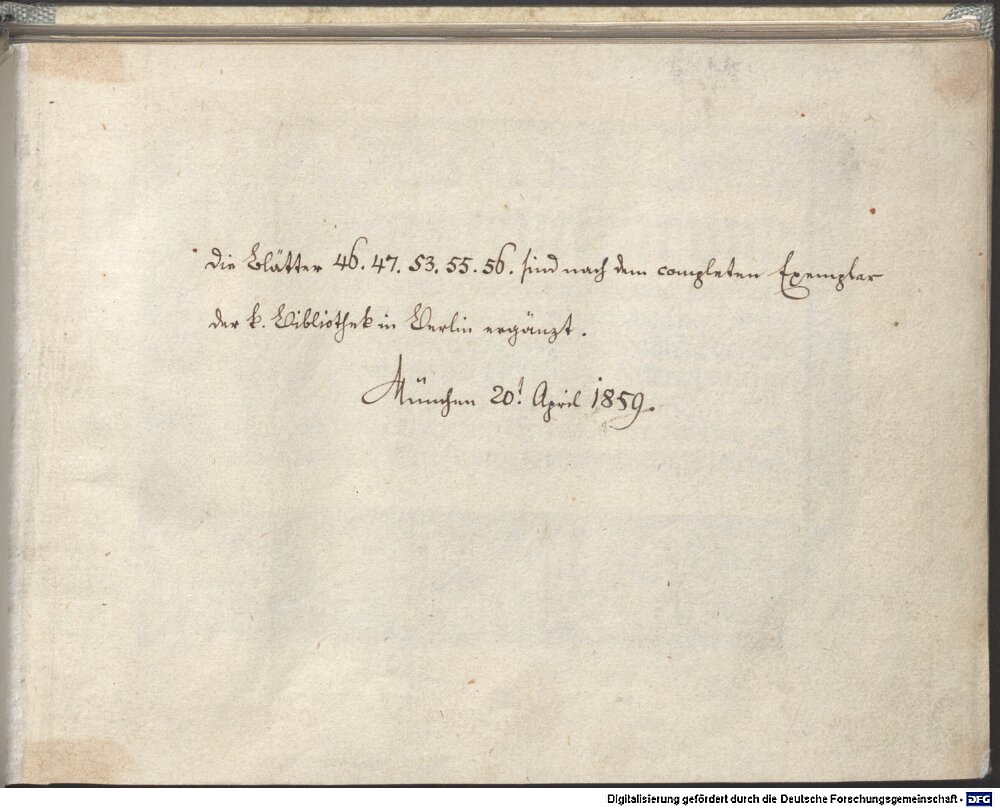 Die Blätter 46. 47. 53. 55. 56. sind nach dem completen Exemplar
der k. Bibliothek in Berlin ergänzt.
München 20t April 1859.
Digitalisierung gefördert durch die Deutsche Forschungsgemeinschaft - DFG